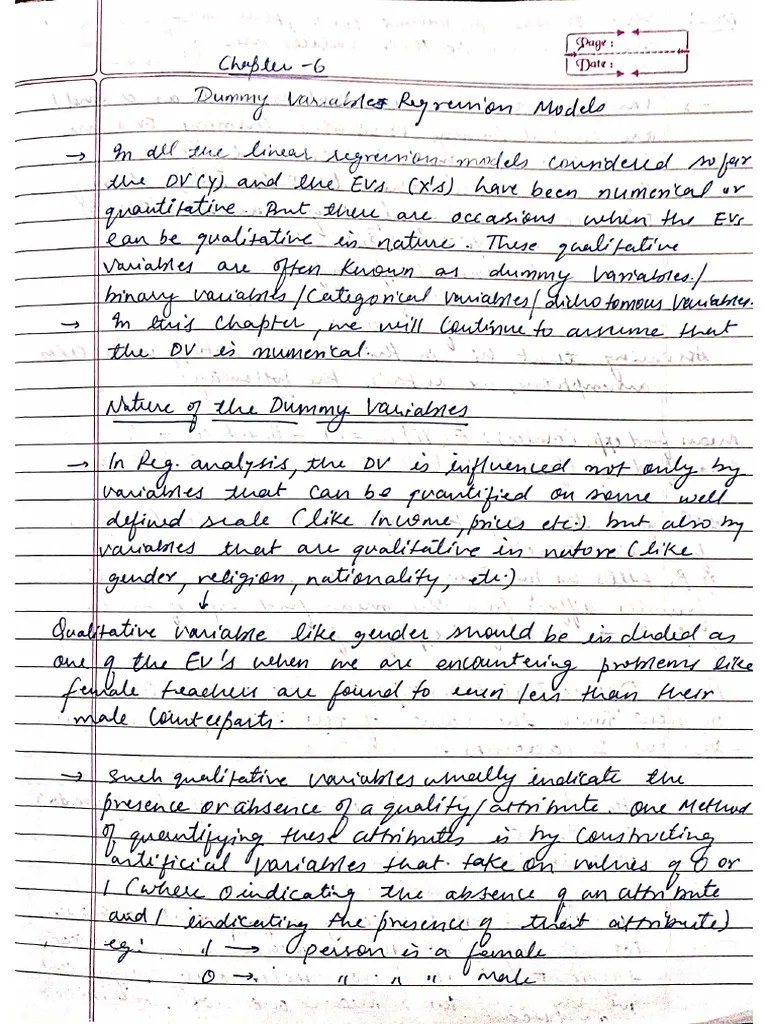 Page :
Date :
Chapter -6
Dummy Variables Regression Models
→ In all the linear regression models considered so far
the DV(Y) and the EVs (X's) have been numerical or
quantitative. But there are occasions when the EVs
can be qualitative in nature. These qualitative
variables are often known as dummy variables/
binary variables/Categorical variables/dichotomous variables.
→ In this chapter, we will continue to assume that
the DV is numerical.
Nature of the Dummy Variables
→ In Reg. analysis, the DV is influenced not only by
variables that can be quantified on some well
defined scale (like Income, prices etc.) but also by
variables that are qualitative in nature (like
gender, religion, nationality, etc.)
↓
Qualitative variable like gender should be included as
one of the EV's when we are encountering problems like
female teachers are found to earn less than their
male counterparts.
→ Such qualitative variables usually indicate the
presence or absence of a quality/attribute. One Method
of quantifying these attributes is by constructing
artificial variables that take on values of 0 or
1 (where 0 indicating the absence of an attribute
and 1 indicating the presence of that attribute)
eg: 1 → person is a female
0 → " " " male